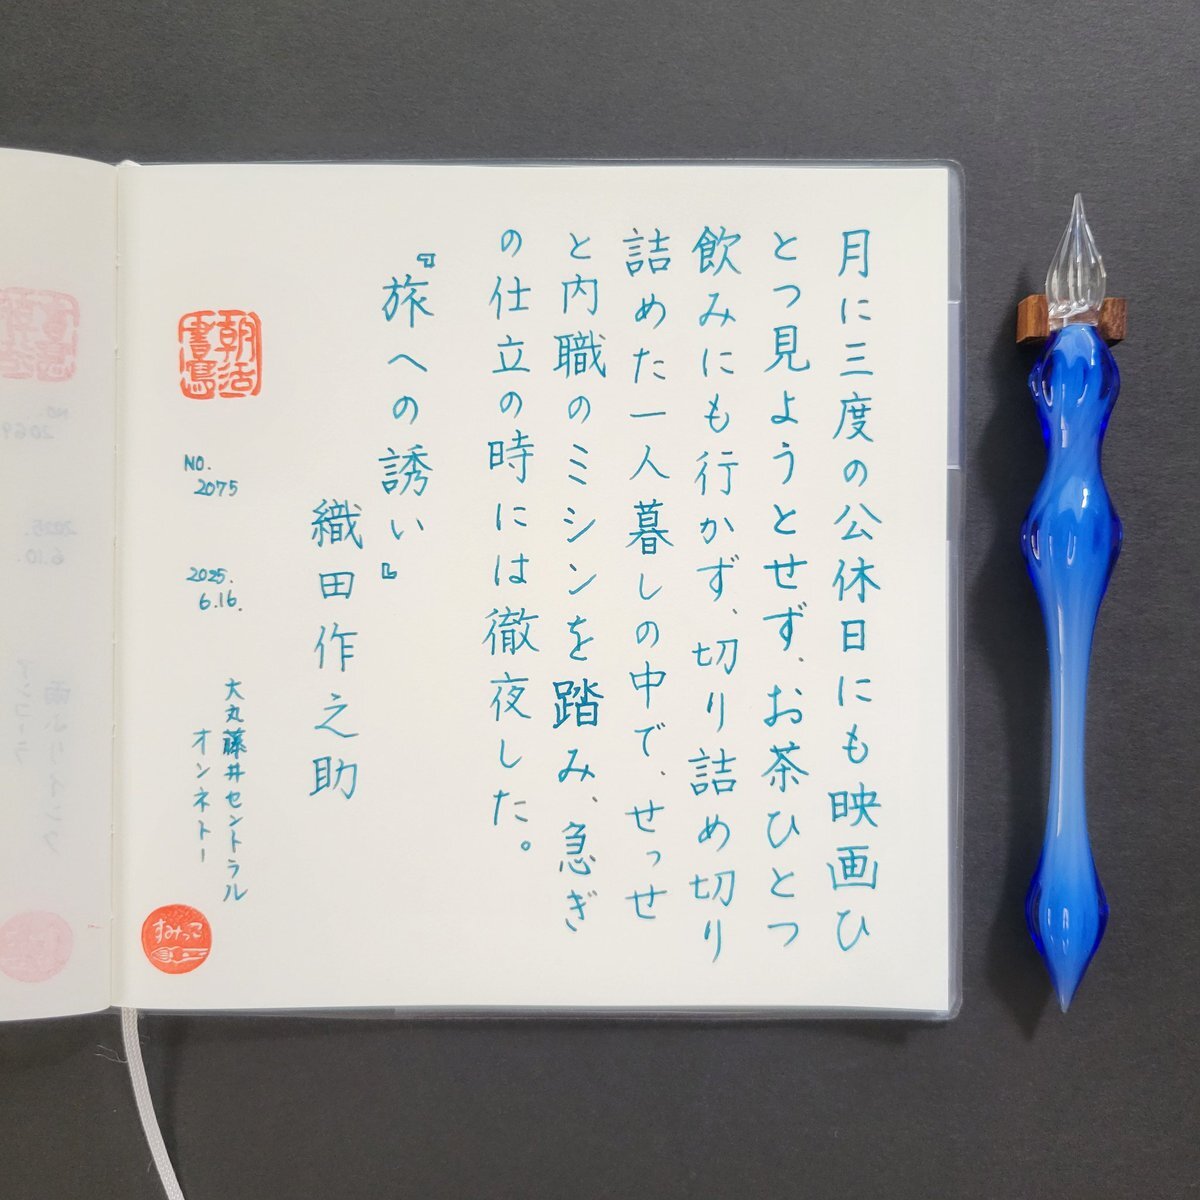 月に三度の公休日にも映画ひ
とつ見ようとせず、お茶ひとつ
飲みにも行かず、切り詰め切り
詰めた一人暮しの中で、せっせ
と内職のミシンを踏み、急ぎ
の仕立の時には徹夜した。
『旅への誘い』
織田作之助
朝活
書写
NO.
2075
2025.
6.16.
大丸藤井セントラル
オンネトー
すみっこ